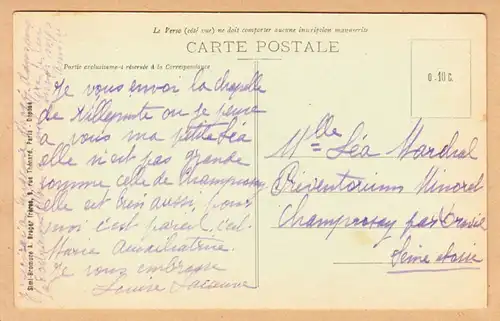 Le Verso (côté vue) ne doit comporter aucune inscription manuscrite
CARTE POSTALE
Partie exclusivement réservée à la Correspondance
0.10 c.
Je vous envoi la chapelle
de Villepinte ou je pense
a vous ma petite Léa
elle n'est pas grande
comme celle de Champrosay
elle est bien aussi, pour
moi c'est pareil, c'est
Marie Auxiliatrice.
Je vous embrasse
Louise
Mlle Léa Marchal
Préventorium Minoret
Champrosay par Draveil
Seine et Oise
Simi-Bromure A. Breger frères, 9, rue Thénard, Paris